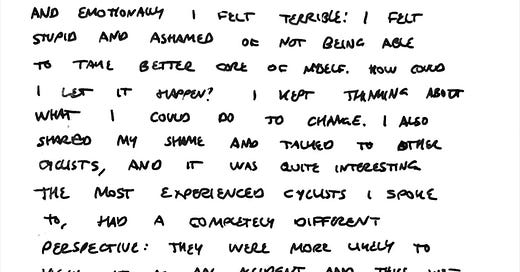 AND EMOTIONALLY I FELT TERRIBLE: I FELT
STUPID AND ASHAMED OF NOT BEING ABLE
TO TAKE BETTER CARE OF MYSELF. HOW COULD
I LET IT HAPPEN? I KEPT THINKING ABOUT
WHAT I COULD DO TO CHANGE. I ALSO
SHARED MY SHAME AND TALKED TO OTHER
CYCLISTS, AND IT WAS QUITE INTERESTING
THE MOST EXPERIENCED CYCLISTS I SPOKE
TO, HAD A COMPLETELY DIFFERENT
PERSPECTIVE: THEY WERE MORE LIKELY TO
IT AS AN ACCIDENT AND THIS